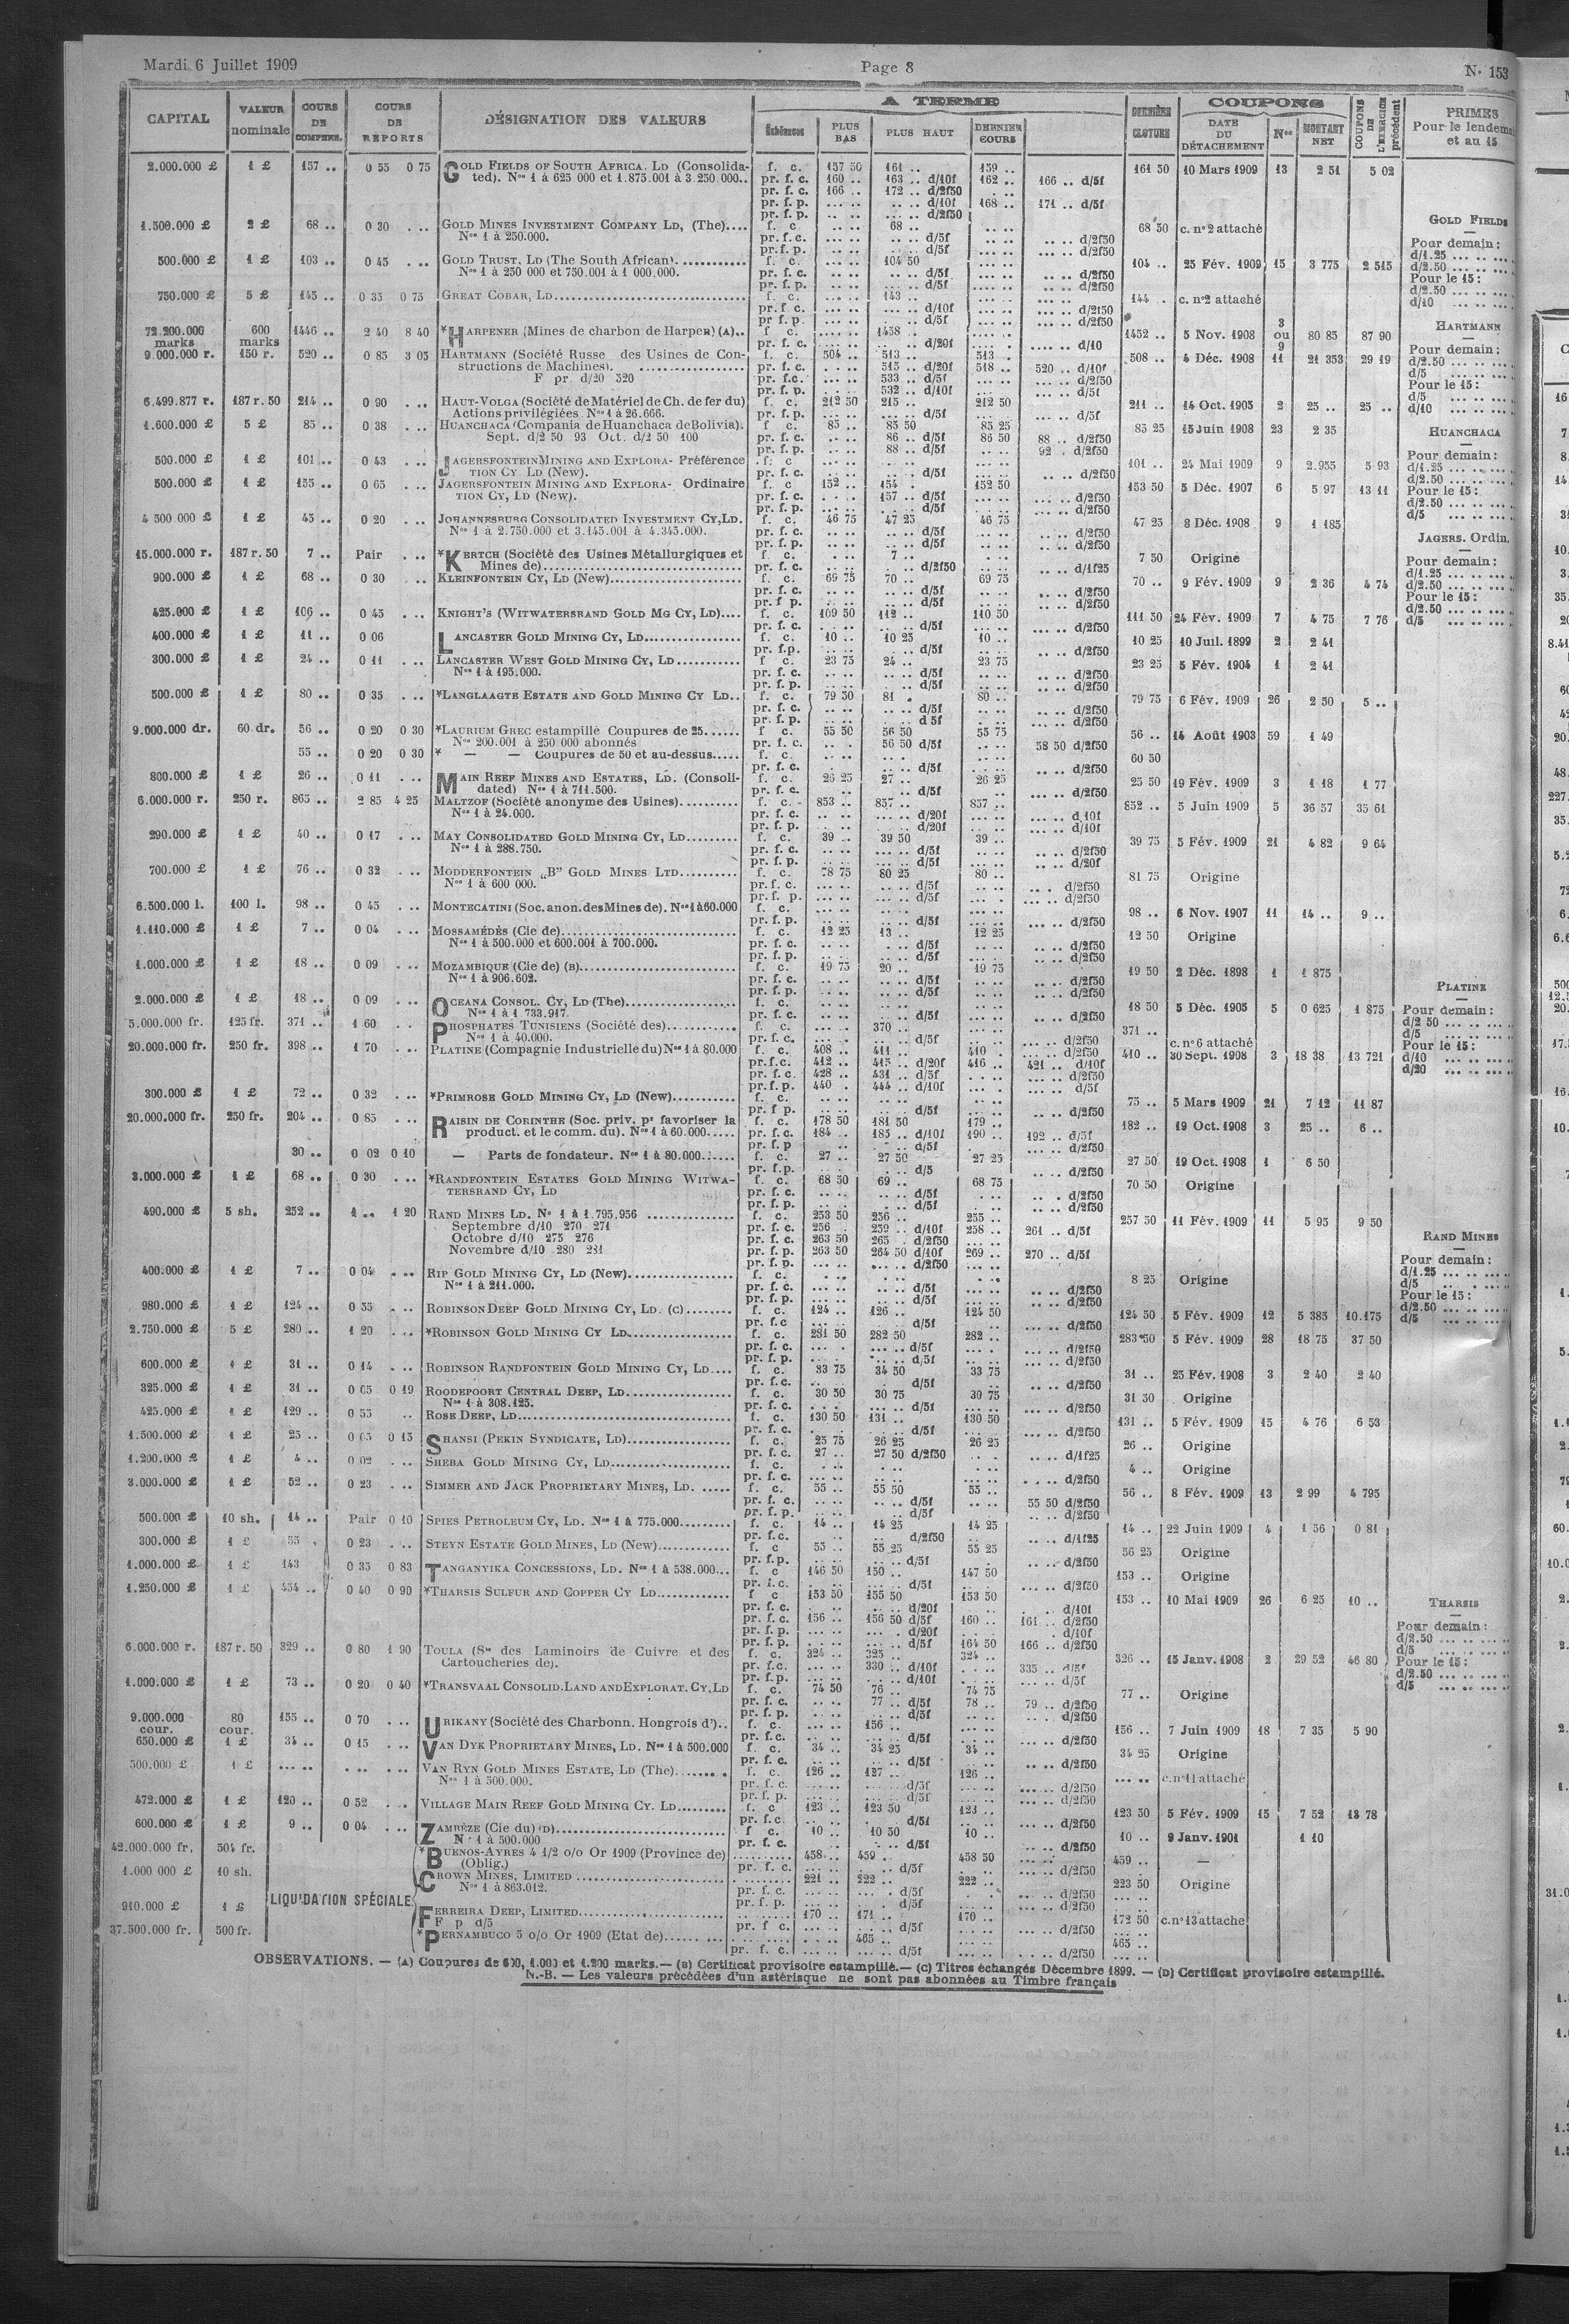 Mardi 6 Juillet 1909
Page 8
N° 153
CAPITAL
VALEUR nominale
COURS DE COMPENS.
COURS DE REPORTS
DÉSIGNATION DES VALEURS
A TERME
Échéances
PLUS BAS
PLUS HAUT
DERNIER COURS
DERNIÈRE CLOTURE
COUPONS
DATE DU DÉTACHEMENT
Nos
MONTANT NET
COUPONS DE L'EXERCICE précédent
PRIMES
Pour le lendem
et au 15
2.000.000 £ 1 £ 157 .. 0 55 0 75 GOLD FIELDS OF SOUTH AFRICA. LD (Consolida- f. c. 157 50 161 .. 159 .. 161 50 10 Mars 1909 13 2 51 5 02
ted). Nos 1 à 625 000 et 1.875.001 à 3.250.000.. pr. f. c. 160 .. 163 .. d/10f 162 .. 166 .. d/5f
pr. f. c. 166 .. 172 .. d/2f50
pr. f. p. .. d/10f 168 .. 171 .. d/5f
pr. f. p. .. d/2f50
1.500.000 £ 2 £ 68 .. 0 30 GOLD MINES INVESTMENT COMPANY LD, (The).... f. c 68 .. 68 50 c. n° 2 attaché
Nos 1 à 250.000. pr. f. c. d/5f d/2f50
pr. f. p. d/5f d/2f50
500.000 £ 1 £ 103 .. 0 45 GOLD TRUST, LD (The South African). f. c. 104 50 104 .. 25 Fév. 1909 15 3 775 2 515
Nos 1 à 250 000 et 750.001 à 1 000.000. pr. f. c. d/5f d/2f50
pr. f. p. d/5f d/2f50
750.000 £ 5 £ 145 .. 0 35 0 75 GREAT COBAR, LD f. c. 143 .. 144 . c. n°2 attaché
pr. f. c. d/10f d/2f50
pr f. p. d/5f d/2f50
72.200.000 marks 600 marks 1446 .. 2 40 8 40 *HARPENER (Mines de charbon de Harpen) (A).. f c. 1458 .. 1452 .. 5 Nov. 1908 3 ou 9 80 85 87 90
pr. f. c. d/20f d/10
9.000.000 r. 150 r. 520 .. 0 85 3 05 HARTMANN (Société Russe des Usines de Con- f. c. 504 .. 513 .. 513 508 .. 4 Déc. 1908 11 21 353 29 19
structions de Machines). pr. f. c. 515 .. d/20f 518 .. 520 .. d/10f
F pr. d/20 520 pr. f.c. 533 .. d/5f d/2f50
pr. f. p. 532 .. d/10f d/5f
6.499.877 r. 187 r. 50 214 .. 0 90 HAUT-VOLGA (Société de Matériel de Ch. de fer du) f. c. 212 50 215 .. 212 50 211 .. 14 Oct. 1905 2 25 .. 25 ..
Actions privilégiées Nos 1 à 26.666. pr. f. p. d/5f d/5f
1.600.000 £ 5 £ 85 .. 0 38 HUANCHACA (Compania de Huanchaca de Bolivia). f c. 85 .. 85 50 85 25 85 25 15 Juin 1908 23 2 35
Sept. d/2 50 93 Oct. d/2 50 100 pr. f. c. 86 .. d/5f 86 50 88 .. d/2f50
pr. f. p. 88 .. d/5f 92 . d/2f50
500.000 £ 1 £ 101 .. 0 43 JAGERSFONTEIN MINING AND EXPLORA- Préférence f. c 101 .. 24 Mai 1909 9 2.955 5 93
TION CY LD (New). pr. f. c. d/5f d/2f50
500.000 £ 1 £ 155 .. 0 65 JAGERSFONTEIN MINING AND EXPLORA- Ordinaire f. c 152 .. 154 . 152 50 153 50 5 Déc. 1907 6 5 97 13 11
TION CY, LD (New). pr. f. c. 157 .. d/5f d/2f50
pr. f. p. d/5f d/2f50
4 500 000 £ 1 £ 45 .. 0 20 JOHANNESBURG CONSOLIDATED INVESTMENT CY,LD. f. c. 46 75 47 25 46 75 47 25 8 Déc. 1908 9 1 185
Nos 1 à 2.750.000 et 3.145.001 à 4.345.000. pr. f. c. d/5f d/2f50
pr. f. p. d/5f d/2f50
15.000.000 r. 187 r. 50 7 .. Pair *KERTCH (Société des Usines Métallurgiques et f. c. 7 .. 7 50 Origine
Mines de) pr. f. c. d/2f50 d/1f25
900.000 £ 1 £ 68 .. 0 30 KLEINFONTEIN CY, LD (New) f. c. 69 75 70 .. 69 75 70 .. 9 Fév. 1909 9 2 36 4 74
pr. f. c. d/5f d/2f50
pr. f p. d/5f d/2f50
425.000 £ 1 £ 106 .. 0 45 KNIGHT'S (WITWATERSRAND GOLD MG CY, LD).... f. c. 109 50 112 .. 110 50 111 50 24 Fév. 1909 7 4 75 7 76
pr. f. c. d/5f d/2f50
400.000 £ 1 £ 11 .. 0 06 LANCASTER GOLD MINING CY, LD f. c. 10 .. 10 25 10 .. 10 25 10 Juil. 1899 2 2 41
pr. f.p. d/5f d/2f50
300.000 £ 1 £ 24 .. 0 11 LANCASTER WEST GOLD MINING CY, LD f c. 23 75 24 .. 23 75 23 25 5 Fév. 1904 1 2 41
Nos 1 à 195.000. pr. f. c. d/5f d/2f50
pr. f. p. d/5f d/2f50
500.000 £ 1 £ 80 .. 0 35 *LANGLAAGTE ESTATE AND GOLD MINING CY LD.. f. c. 79 50 81 . 80 .. 79 75 6 Fév. 1909 26 2 50 5 ..
pr. f. c. d/5f d/2f50
pr. f. p. d 5f d/2f50
9.000.000 dr. 60 dr. 56 .. 0 20 0 30 *LAURIUM GREC estampillé Coupures de 25 f c. 55 50 56 50 55 75 56 .. 14 Août 1903 59 1 49
Nos 200.001 à 250 000 abonnés pr. f. c. 56 50 d/5f 58 50 d/2f50
55 .. 0 20 0 30 * — — Coupures de 50 et au-dessus..... f. c. 60 50
pr. f. c. d/5f d/2f50
800.000 £ 1 £ 26 .. 0 11 MAIN REEF MINES AND ESTATES, LD. (Consoli- f. c. 26 25 27 .. 26 25 25 50 19 Fév. 1909 3 1 18 1 77
dated) Nos 1 à 711.500. pr. f. c. d/5f d/2f50
6.000.000 r. 250 r. 865 .. 2 85 4 25 MALTZOF (Société anonyme des Usines) f. c. 853 .. 857 .. 857 .. 852 .. 5 Juin 1909 5 36 57 35 61
Nos 1 à 24.000. pr. f. c. d/20f d 10f
pr. f. p. d/20f d/10f
290.000 £ 1 £ 40 .. 0 17 MAY CONSOLIDATED GOLD MINING CY, LD f. c. 39 .. 39 50 39 .. 39 75 5 Fév. 1909 21 4 82 9 64
Nos 1 à 288.750. pr. f. c. d/5f d/2f50
pr. f. p. d/5f d/20f
700.000 £ 1 £ 76 .. 0 32 MODDERFONTEIN „B" GOLD MINES LTD f. c. 78 75 80 25 80 .. 81 75 Origine
Nos 1 à 600 000. pr. f. c. d/5f d/2f50
pr. f. p. d/5f d/2f50
6.500.000 l. 100 l. 98 .. 0 45 MONTECATINI (Soc. anon. des Mines de). Nos 1 à 60.000 f. c. 98 .. 6 Nov. 1907 11 14 .. 9 ..
pr. f. p. d/5f d/2f50
1.110.000 £ 1 £ 7 .. 0 04 MOSSAMÉDÈS (Cie de) f. c. 12 25 13 .. 12 25 12 50 Origine
Nos 1 à 500.000 et 600.001 à 700.000. pr. f. c. d/5f d/2f50
pr. f. p. d/5f d/2f50
1.000.000 £ 1 £ 18 .. 0 09 MOZAMBIQUE (Cie de) (B) f. c. 19 75 20 .. 19 75 19 50 2 Déc. 1898 1 1 875
Nos 1 à 906.602. pr. f. c. d/5f d/2f50
pr. f. p. d/5f d/2f50
2.000.000 £ 1 £ 18 .. 0 09 OCEANA CONSOL. CY, LD (The) f. c. 18 50 5 Déc. 1905 5 0 625 1 875
Nos 1 à 1 733.917. pr. f. c. d/5f d/2f50
5.000.000 fr. 125 fr. 371 .. 1 60 PHOSPHATES TUNISIENS (Société des) f. c. 370 .. 371 .. c. n° 6 attaché
Nos 1 à 40.000. pr. f. c. d/5f d/2f50
20.000.000 fr. 250 fr. 398 .. 1 70 PLATINE (Compagnie Industrielle du) Nos 1 à 80.000 f. c. 408 .. 411 .. 410 . d/2f50 410 .. 30 Sept. 1908 3 18 38 13 721
pr. f. c. 412 .. 415 .. d/20f 416 .. 421 .. d/10f
pr. f. c. 428 .. 431 .. d/5f d/2f50
pr. f. p. 440 . 444 .. d/10f d/5f
300.000 £ 1 £ 72 .. 0 32 *PRIMROSE GOLD MINING CY, LD (New) f. c. 75 .. 5 Mars 1909 21 7 12 11 87
pr. f p. d/5f d/2f50
20.000.000 fr. 250 fr. 204 .. 0 85 RAISIN DE CORINTHE (Soc. priv. pr favoriser la f. c. 178 50 181 50 179 .. 182 .. 19 Oct. 1908 3 25 .. 6 ..
product. et le comm. du). Nos 1 à 60.000..... pr. f. c. 184 .. 185 .. d/10f 190 .. 192 .. d/5f
pr. f. p d/5f d/2f50
30 .. 0 02 0 10 — Parts de fondateur. Nos 1 à 80.000 f. c. 27 .. 27 50 27 25 27 50 19 Oct. 1908 1 6 50
pr. f.p. d/5 d/2f50
3.000.000 £ 1 £ 68 .. 0 30 *RANDFONTEIN ESTATES GOLD MINING WITWA- f. c. 68 50 69 .. 68 75 70 50 Origine
TERSRAND CY, LD pr. f. c. d/5f d/2f50
pr. f. p. d/5f d/2f50
490.000 £ 5 sh. 252 .. 1 .. 1 20 RAND MINES LD. N° 1 à 1.795.956 f. c. 253 50 256 .. 255 .. 257 50 11 Fév. 1909 11 5 95 9 50
Septembre d/10 270 271 pr. f. c. 256 259 .. d/10f 258 .. 261 .. d/5f
Octobre d/10 275 276 pr. f. c. 263 50 265 . d/2f50
Novembre d/10 280 281 pr. f. p. 263 50 264 50 d/10f 269 .. 270 .. d/5f
pr. f. p. d/2f50
400.000 £ 1 £ 7 .. 0 04 RIP GOLD MINING CY, LD (New) f. c. 8 25 Origine
Nos 1 à 211.000. pr. f. c. d/5f d/2f50
pr. f. p. d/5f d/2f50
980.000 £ 1 £ 124 .. 0 55 ROBINSON DEEP GOLD MINING CY, LD. (C) f. c. 124 .. 126 .. 124 50 124 50 5 Fév. 1909 12 5 385 10.175
pr. f.c d/5f d/2f50
2.750.000 £ 5 £ 280 .. 1 20 *ROBINSON GOLD MINING CY LD f. c. 281 50 282 50 282 .. 283 50 5 Fév. 1909 28 18 75 37 50
pr. f. c. d/5f d/2f50
pr. f. p. d/5f d/2f50
600.000 £ 1 £ 31 .. 0 14 ROBINSON RANDFONTEIN GOLD MINING CY, LD.... f. c. 33 75 34 50 33 75 31 .. 25 Fév. 1908 3 2 40 2 40
pr. f. c. d/5f d/2f50
325.000 £ 1 £ 31 .. 0 05 0 19 ROODEPOORT CENTRAL DEEP, LD f. c. 30 50 30 75 30 75 31 50 Origine
Nos 1 à 308.125. pr. f. c. d/5f d/2f50
425.000 £ 1 £ 129 .. 0 55 ROSE DEEP, LD f. c. 130 50 131 .. 130 50 131 .. 5 Fév. 1909 15 4 76 6 53
pr. f. c. d/5f d/2f50
1.500.000 £ 1 £ 25 .. 0 05 0 15 SHANSI (PEKIN SYNDICATE, LD) f. c. 25 75 26 25 26 25 26 .. Origine
pr. f. c. 27 .. 27 50 d/2f50 d/1f25
1.200.000 £ 1 £ 4 .. 0 02 SHEBA GOLD MINING CY, LD f. c. 4 .. Origine
pr. f. c. d/2f50
3.000.000 £ 1 £ 52 .. 0 23 SIMMER AND JACK PROPRIETARY MINES, LD. f. c. 55 .. 55 50 55 .. 56 .. 8 Fév. 1909 13 2 99 4 795
pr. f. c. d/5f 55 50 d/2f50
pr. f. p. d/5f d/2f50
500.000 £ 10 sh. 14 .. Pair 0 10 SPIES PETROLEUM CY, LD. Nos 1 à 775.000 f. c. 14 .. 14 25 14 25 14 .. 22 Juin 1909 4 1 56 0 81
pr. f.c. d/2f50 d/1f25
300.000 £ 1 £ 55 . 0 23 STEYN ESTATE GOLD MINES, LD (New) f. c 55 .. 55 25 55 25 56 25 Origine
pr. f.p. d/5f d/2f50
1.000.000 £ 1 £ 143 0 35 0 83 TANGANYIKA CONCESSIONS, LD. Nos 1 à 538.000... f. c 146 50 150 .. 147 50 153 .. Origine
pr. f. c. d/5f d/2f50
1.250.000 £ 1 £ 154 .. 0 40 0 90 *THARSIS SULFUR AND COPPER CY LD f. c 153 50 155 50 153 50 153 .. 10 Mai 1909 26 6 25 10 ..
pr. f. c. d/20f d/10f
pr. f. c. 156 .. 156 50 d/5f 160 .. 161 .. d/2f50
pr. f. p. d/20f d/10f
pr. f. p. d/5f 164 50 166 .. d/2f50
6.000.000 r. 187 r. 50 329 .. 0 80 1 90 TOULA (Sté des Laminoirs de Cuivre et des f. c. 324 .. 325 .. 324 .. 326 .. 15 Janv. 1908 2 29 52 46 80
Cartoucheries de). pr. f.c. 330 .. d/10f 335 .. d/5f
pr. f.p. d/10f d/5f
1.000.000 £ 1 £ 73 .. 0 20 0 40 *TRANSVAAL CONSOLID.LAND AND EXPLORAT. CY,LD f. c. 74 50 76 .. 74 75 77 .. Origine
pr. f. c. 77 .. d/5f 78 .. 79 .. d/2f50
pr. f. p. d/5f d/2f50
9.000.000 cour. 80 cour. 155 .. 0 70 URIKANY (Société des Charbonn. Hongrois d').. f. c. 156 .. 156 .. 7 Juin 1909 18 7 35 5 90
pr. f.c. d/5f d/2f50
650.000 £ 1 £ 34 .. 0 15 VAN DYK PROPRIETARY MINES, LD. Nos 1 à 500.000 f. c. 34 .. 34 25 34 .. 34 25 Origine
pr. f. c. d/5f d/2f50
500.000 £ 1 £ VAN RYN GOLD MINES ESTATE, LD (The) f. c. 126 .. 127 .. 126 .. c. n°11 attaché
Nos 1 à 500.000. pr. f. c. d/5f d/2f50
pr. f. p. d/5f d/2f50
472.000 £ 1 £ 120 .. 0 52 VILLAGE MAIN REEF GOLD MINING CY. LD f. c 123 .. 123 50 123 .. 123 50 5 Fév. 1909 15 7 52 13 78
pr. f.c. d/5f d/2f50
600.000 £ 1 £ 9 .. 0 04 ZAMBÈZE (Cie du) (D) f c. 10 .. 10 50 10 .. 10 .. 9 Janv. 1901 1 10
Nos 1 à 500.000 pr. f. c. d/5f d/2f50
LIQUIDATION SPÉCIALE
42.000.000 fr. 504 fr. *BUENOS-AYRES 4 1/2 o/o Or 1909 (Province de) 458 .. 459 .. 458 50 459 .. —
(Oblig.) pr. f. c. d/5f d/2f50
1.000 000 £ 10 sh. CROWN MINES, LIMITED 221 .. 222 .. 222 .. 223 50 Origine
Nos 1 à 863.012. pr. f. c. d/5f d/2f50
pr. f. p. d/5f d/2f50
910.000 £ 1 £ FERREIRA DEEP, LIMITED 170 .. 171 .. 170 .. 172 50 c. n°13 attache
F p d/5 pr. f c. d/5f d/2f50
37.500.000 fr. 500 fr. *PERNAMBUCO 5 o/o Or 1909 (Etat de) 465 .. 465 ..
pr. f. c. d/5f d/2f50
GOLD FIELDS
—
Pour demain :
d/1.25
d/2.50
Pour le 15 :
d/2.50
d/10
HARTMANN
—
Pour demain :
d/2.50
d/5
Pour le 15 :
d/5
d/10
HUANCHACA
—
Pour demain :
d/1.25
d/2.50
Pour le 15 :
d/2.50
d/5
JAGERS. Ordin.
—
Pour demain :
d/1.25
d/2.50
Pour le 15 :
d/2.50
d/5
PLATINE
—
Pour demain :
d/2 50
d/5
Pour le 15 :
d/10
d/20
RAND MINES
—
Pour demain :
d/1.25
d/5
Pour le 15 :
d/2.50
d/5
THARSIS
—
Pour demain :
d/2.50
d/5
Pour le 15 :
d/2.50
d/5
OBSERVATIONS. — (A) Coupures de 600, 1.000 et 1.200 marks. — (B) Certificat provisoire estampillé. — (C) Titres échangés Décembre 1899. — (D) Certificat provisoire estampillé.
N.-B. — Les valeurs précédées d'un astérisque ne sont pas abonnées au Timbre français